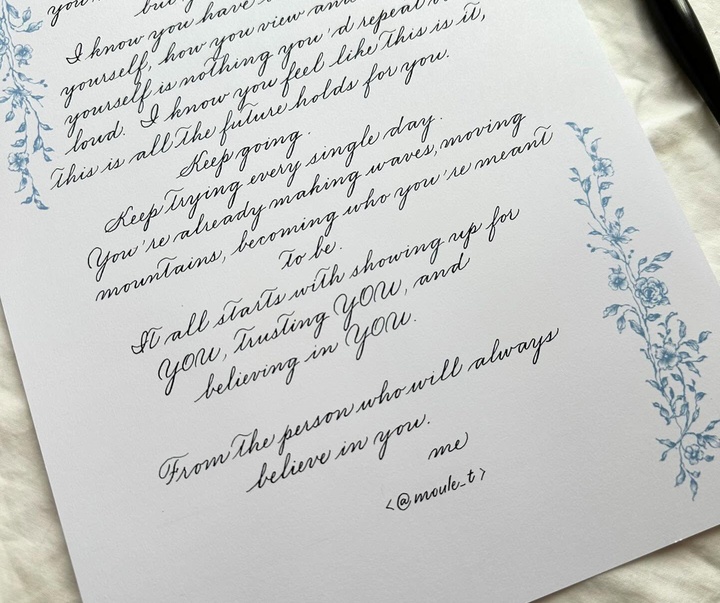 but y
I know you have
yourself, how you view an
yourself is nothing you'd repeat
loud. I know you feel like this is it,
this is all the future holds for you.
Keep going.
Keep trying every single day.
You're already making waves, moving
mountains, becoming who you're meant
to be.
It all starts with showing up for
YOU, trusting YOU, and
believing in YOU.
From the person who will always
believe in you.
me
<@moule_t>